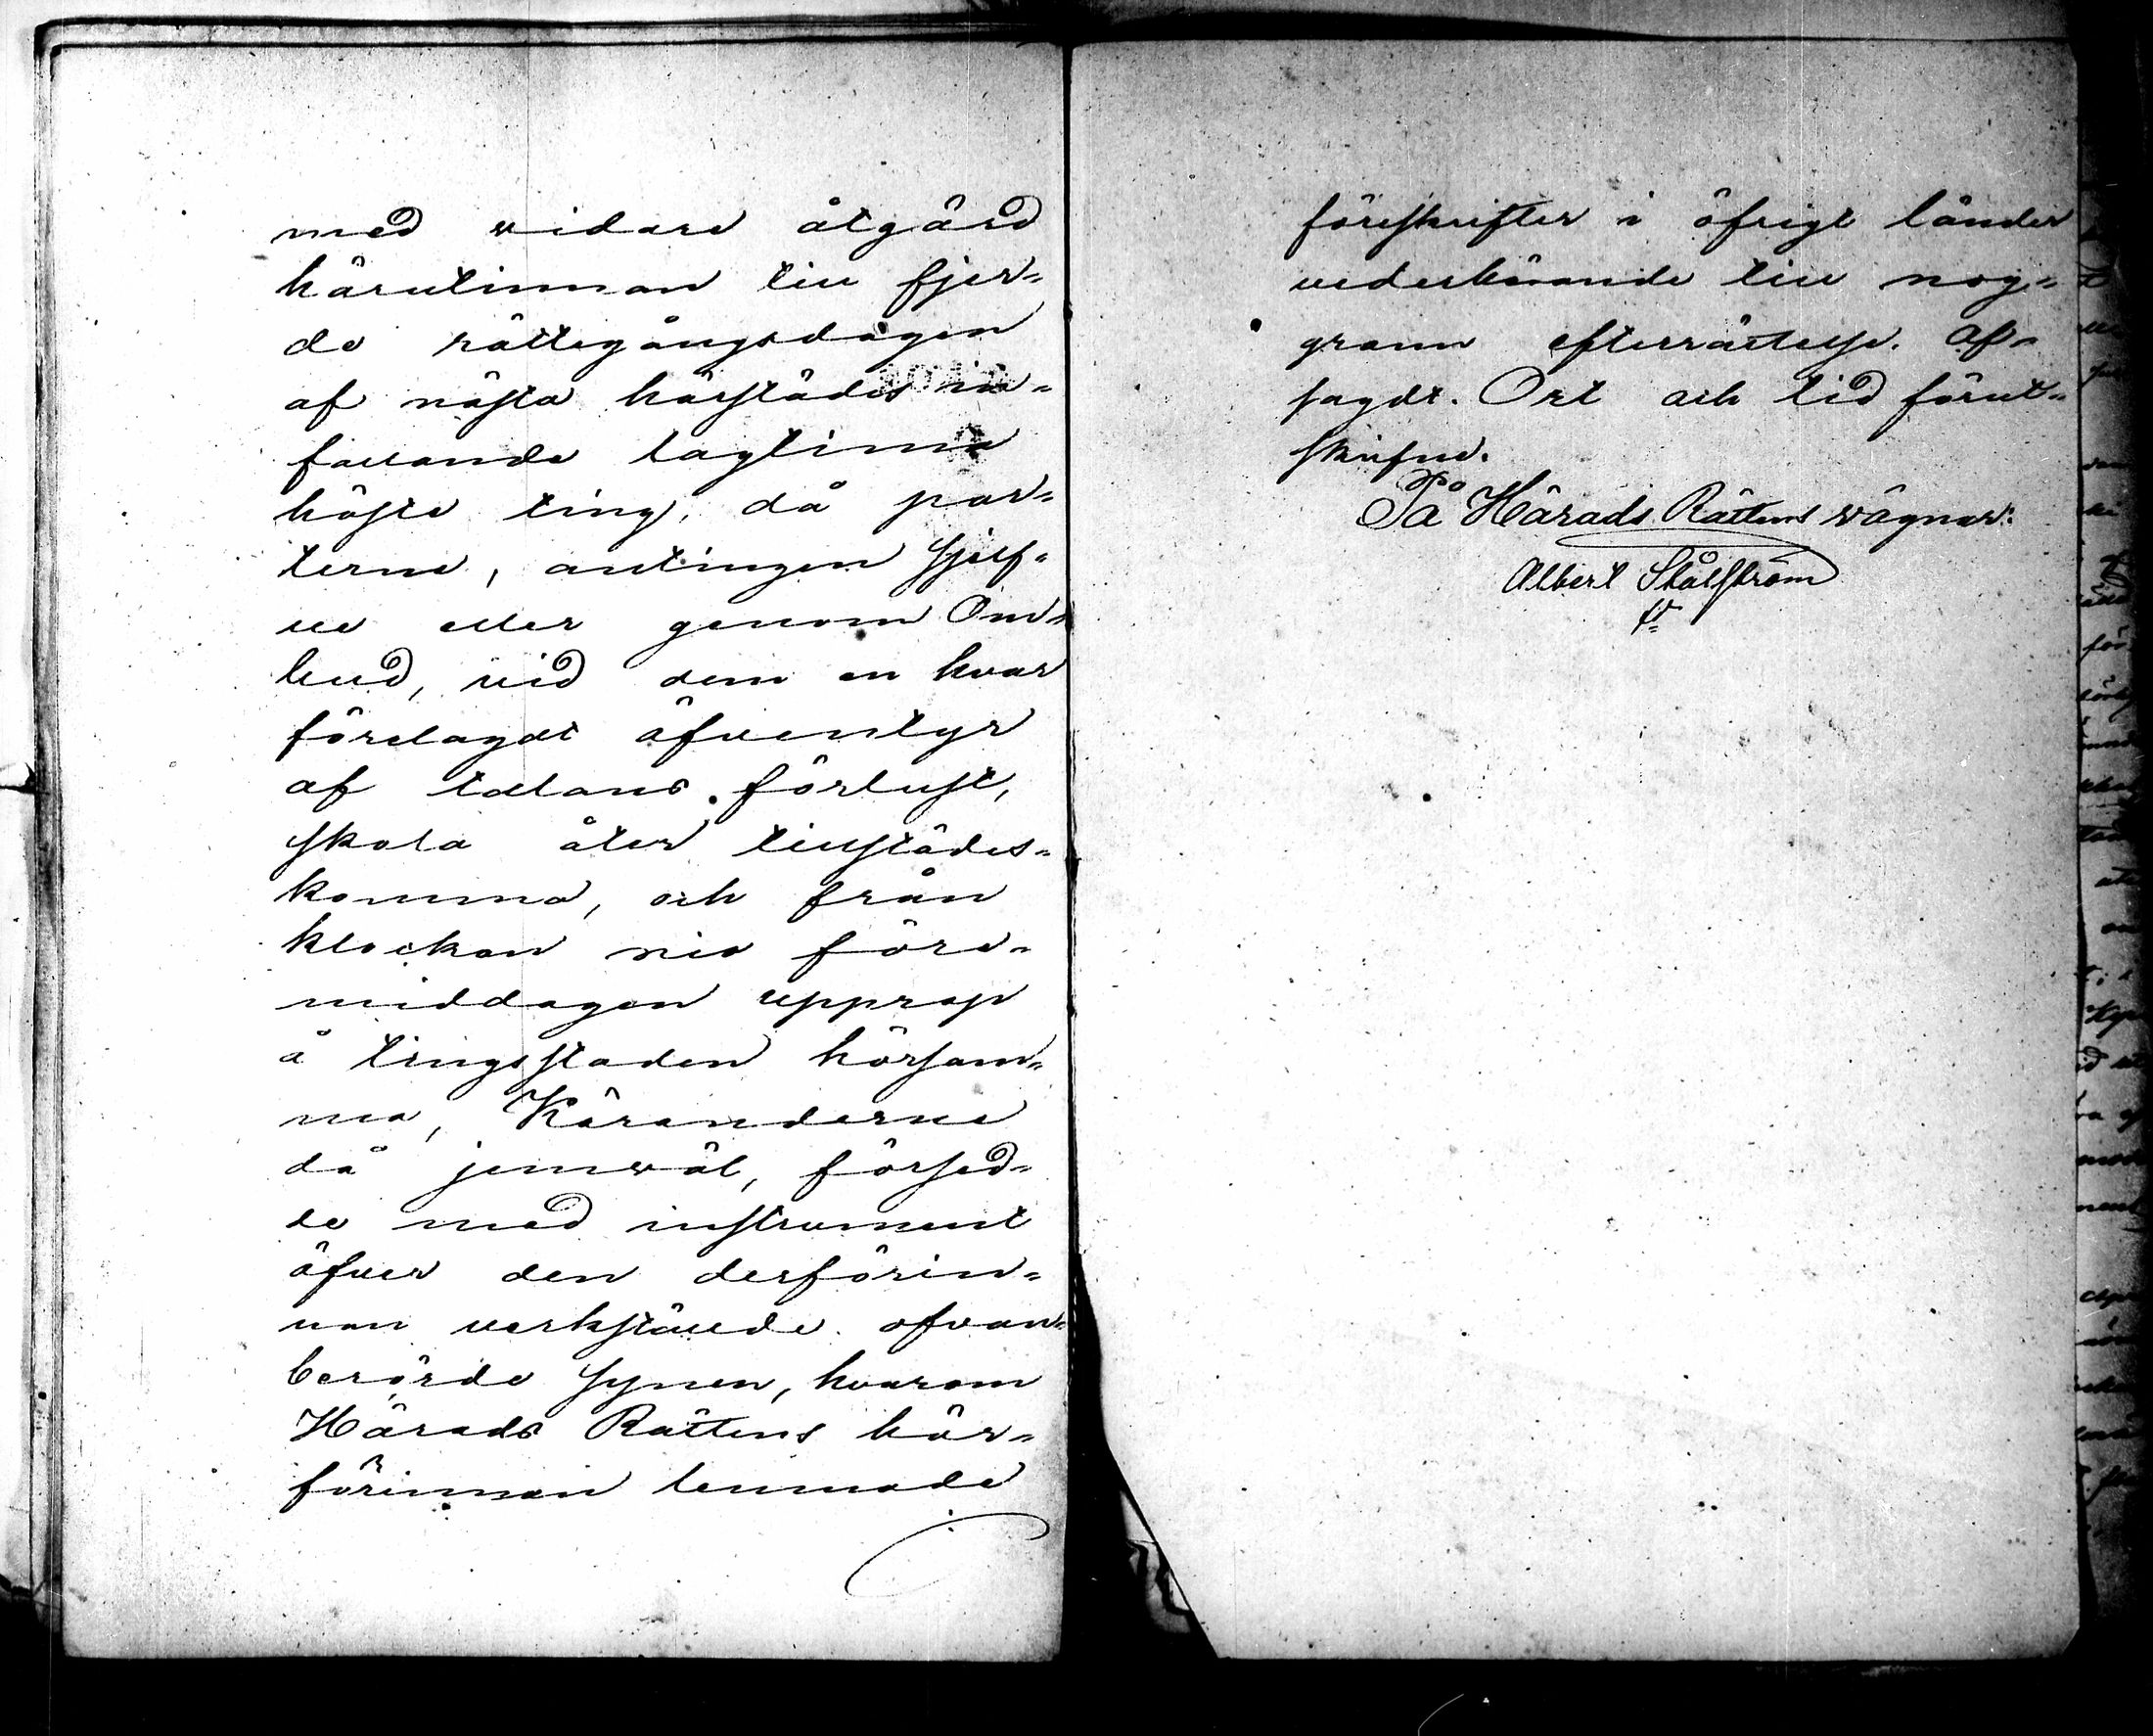 med widare åtgärd
härutinnan till fjer-
de rättegångsdagen
af nästa härstädes in-
fallande lagtima
höste ting, då par-
terne, antingen sjelf-
ve eller genom Om-
bud, vid dem en hvar
förelagdt äfventyr
af talans förlust,
skola åter tillstädes-
komma, och från
klockan nio före-
middagen upprop
å tingsstaden hörsam-
ma, Käranderne
då jemwäl, försed-
de med instrument
öfver den derförin-
nan verkstälde ofvan-
berörde synen, hvarom
Härads Rättens här-
förinnan lemnade
föreskrifter i öfrigt länder
vederbörande till nog-
grann efterrättelse. Af-
sagdt. Ort och tid förut-
skrifne.
På Härads Rättens wägnar:
Albert Stålström